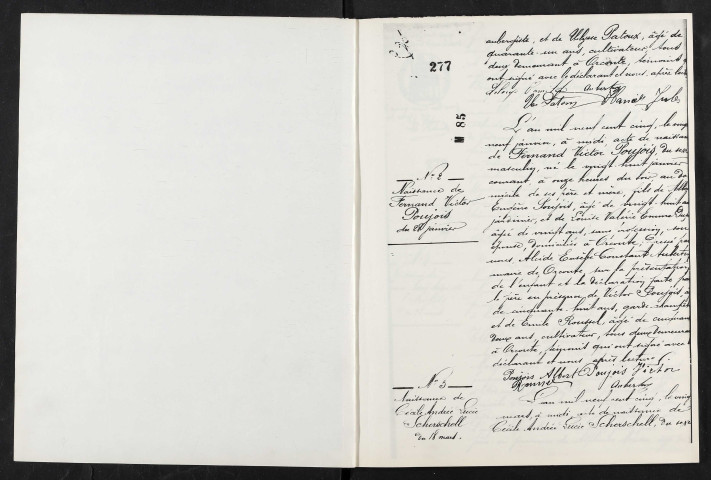 277
M 85
aubergiste, et de Ulysse Patoux, âgé de
quarante-un ans, cultivateur, tous
deux demeurant à Orconte, témoins
ont signé avec le déclarant et nous, après
Aubert
L'an mil neuf cent cinq, le vingt
neuf janvier, à midi, acte de naissance
de Fernand Victor Poujois, du sexe
masculin, né le vingt huit janvier
courant, à onze heures du soir, au do
micile de ses père et mère, fils de
Eugène Poujois, âgé de vingt huit
jardinier, et de Louise Valérie Emma
âgée de vingt ans, sans profession, son
épouse, domiciliés à Orconte; Dressé par
nous, Alcide Eusèbe Constant Aubert
maire de Orconte, sur la présentation
de l'enfant et la déclaration faite par
le père en présence de Victor Poujois
de cinquante huit ans, garde champêtre
et de Emile Roussel, âgé de cinquante
deux ans, cultivateur, tous deux demeurant
à Orconte, témoins qui ont signé avec
déclarant et nous après lecture.
Poujois Albert Poujois Victor
Aubert
N° 2
Naissance de
Fernand Victor
Poujois
du 28 janvier
N° 3
Naissance de
Cécile Andrée Lucie
Scherschell
du 18 mars.
L'an mil neuf cent cinq, le vingt
mars, à midi, acte de naissance de
Cécile Andrée Lucie Scherschell, du sexe